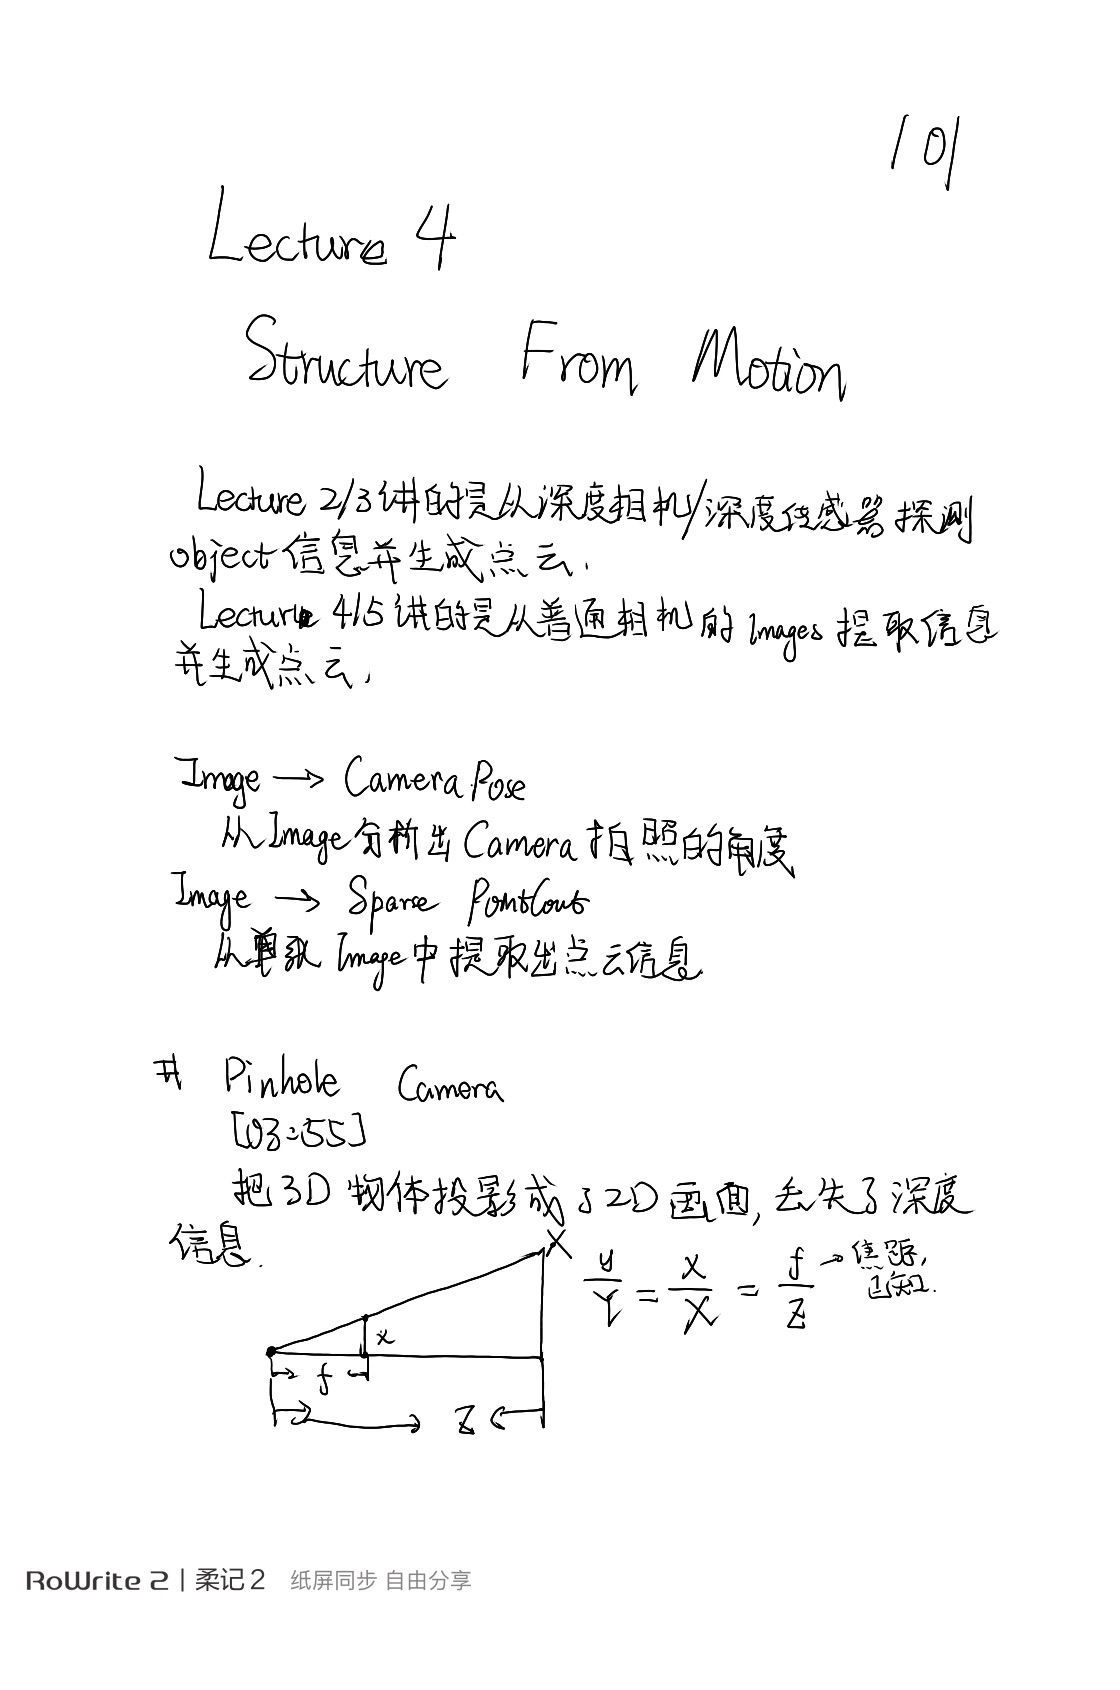 101
Lecture 4
Structure From Motion
Lecture 2/3讲的是从深度相机/深度传感器探测
object信息并生成点云.
Lecture 4/5讲的是从普通相机的Images提取信息
并生成点云.
Image → Camera Pose
从Image分析出Camera拍照的角度
Image → Sparse
从单张Image中提取出点云信息
# Pinhole Camera
[03:55]
把3D物体投影成了2D画面,丢失了深度
信息.
X
y/Y = x/X = f/Z → 焦距,
已知.
x
f
Z
RoWrite 2 | 柔记2 纸屏同步 自由分享